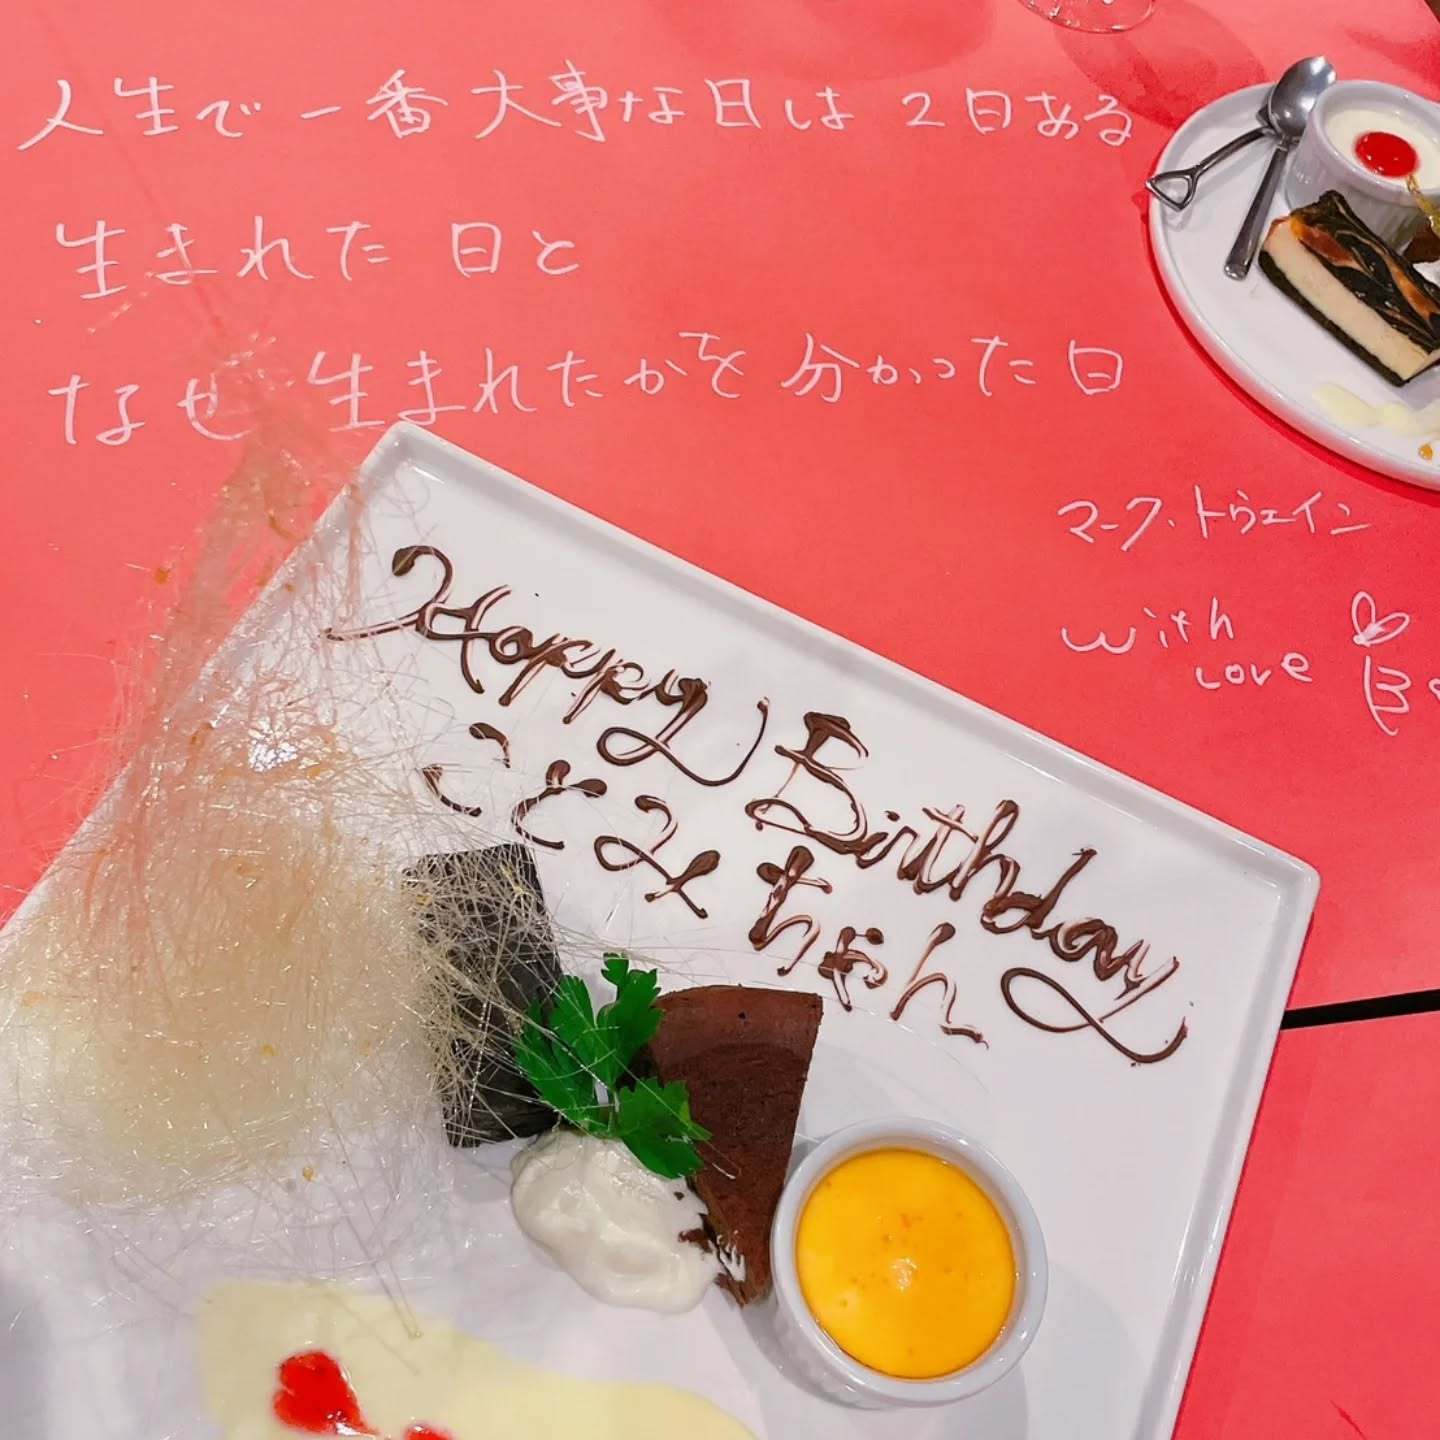 人生で一番大事な日は2日ある
生まれた日と
なぜ生まれたかを分かった日
マーク・トウェイン
with
love
Happy Birthday
ことみちゃん